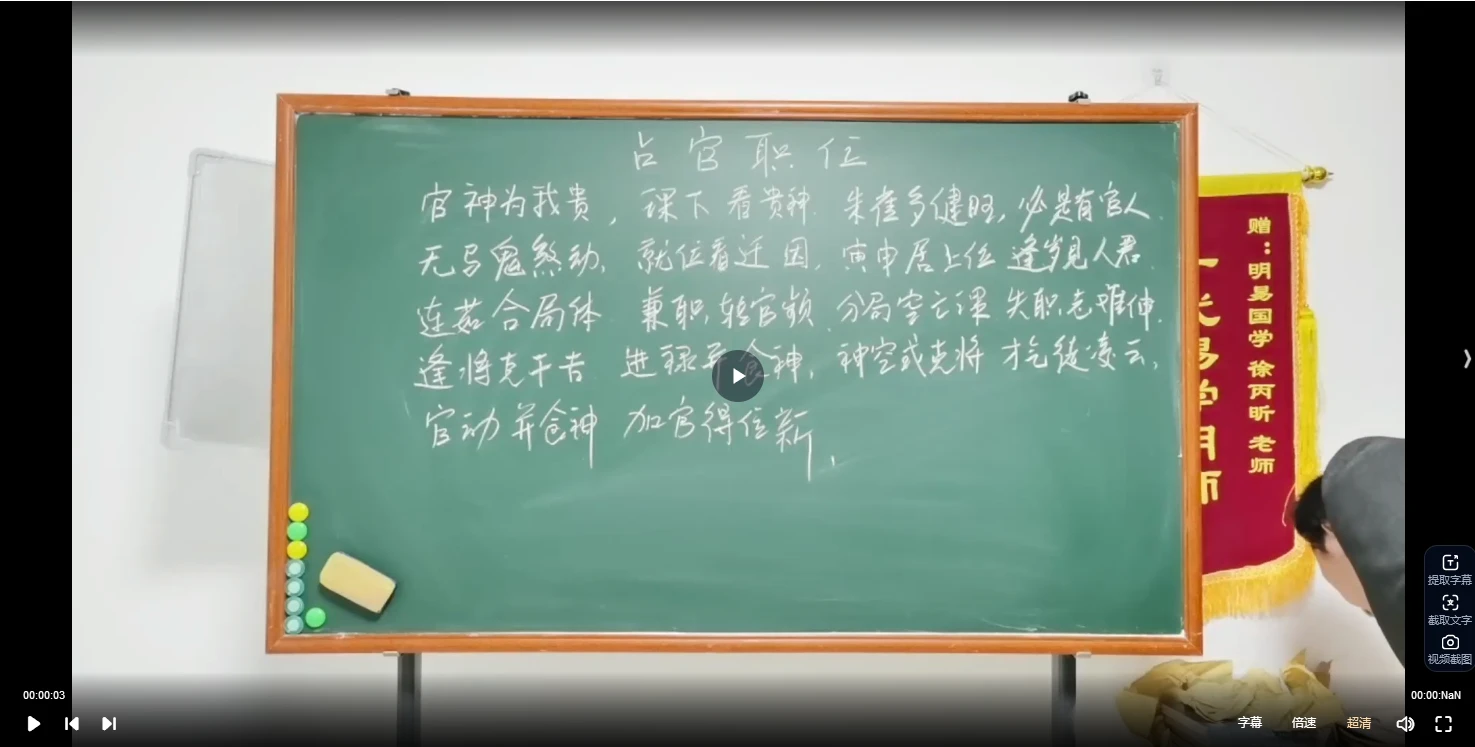 占官职位
官神为我贵，课下看贵神．朱雀多健旺，必是有官人．
无马鬼煞动，就位看迁因，寅申居上位 逢岁见人君．
连茹合局体 兼职，转官频．分局空亡课 失职志难伸．
逢将克干者 进禄并食神，神空或克将 才气徒凌云，
官动并食神 加官得位新，
赠：明易国学 徐丙昕 老师
易学明师
提取字幕
截取文字
视频截图
00:00:03
00:00:NaN
字幕 倍速 超清